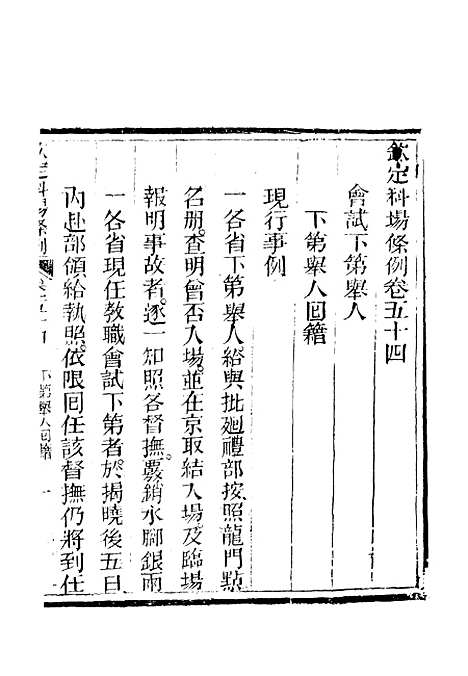 欽定科場條例卷五十四
會試下第舉人
下第舉人回籍
現行事例
一各省下第舉人給與批廻禮部按照龍門點
名册查明曾否入場並在京取結入場及臨場
報明事故者逐一知照各督撫覈銷水腳銀兩
一各省現任教職會試下第者於揭曉後五日
內赴部領給執照依限回任該督撫仍將到任
欽定科場條例 卷五十四 下第舉人回籍 一